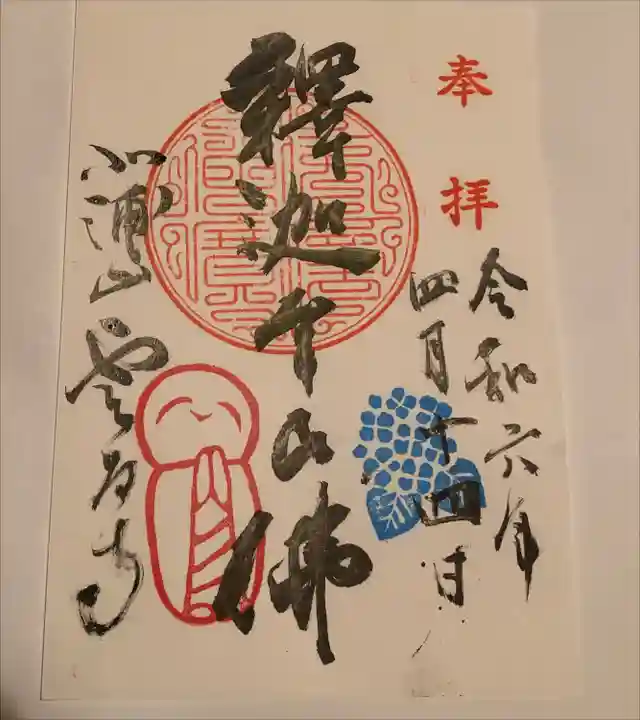 奉拝
令和六年
四月十四日
釋迦牟尼佛
北浦山 雲昌寺